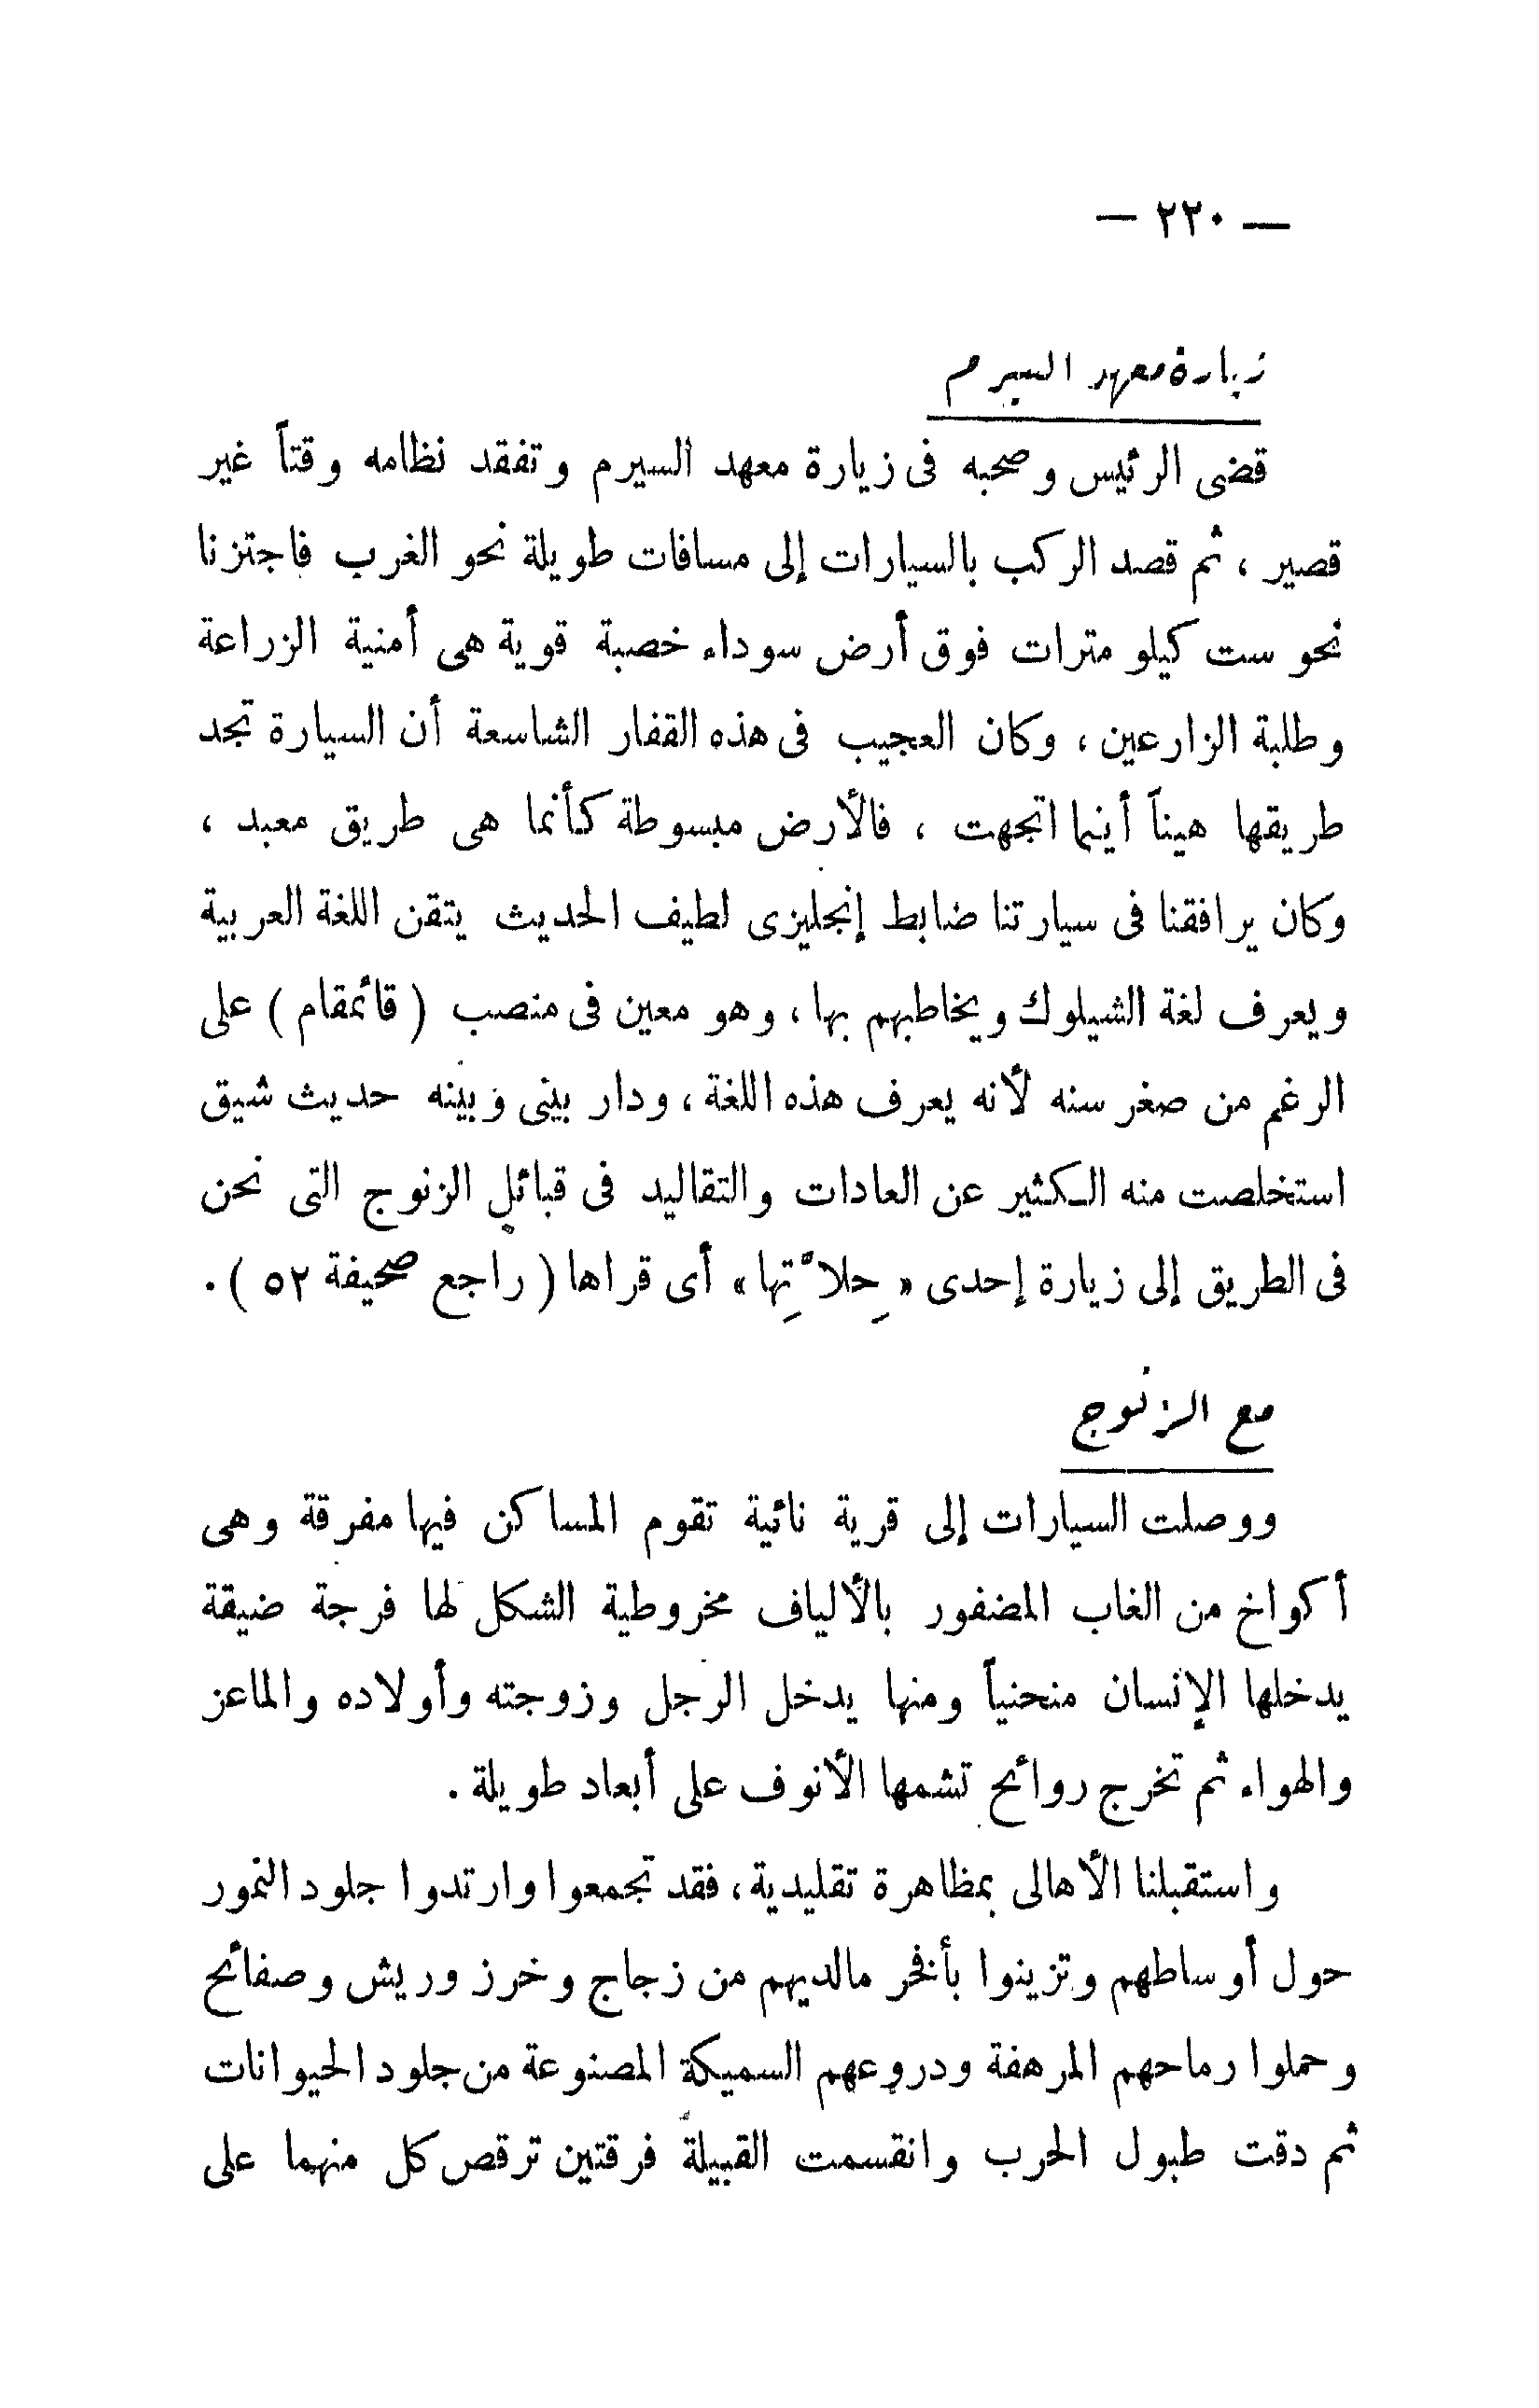 — ٢٢٠ —
زيارة معهد السيرم
قضى الرئيس وصحبه فى زيارة معهد السيرم وتفقد نظامه وقتاً غير
قصير ، ثم قصد الركب بالسيارات إلى مسافات طويلة نحو الغرب فاجتزنا
نحو ست كيلو مترات فوق أرض سوداء خصبة قوية هى أمنية الزراعة
وطلبة الزارعين ، وكان العجيب فى هذه القفار الشاسعة أن السيارة تجد
طريقها هيناً أينما اتجهت ، فالأرض مبسوطة كأنما هى طريق معبد ،
وكان يرافقنا فى سيارتنا ضابط إنجليزى لطيف الحديث يتقن اللغة العربية
ويعرف لغة الشيلوك ويخاطبهم بها ، وهو معين فى منصب ( قائمقام ) على
الرغم من صغر سنه لأنه يعرف هذه اللغة ، ودار بينى وبينه حديث شيق
استخلصت منه الكثير عن العادات والتقاليد فى قبائل الزنوج التى نحن
فى الطريق إلى زيارة إحدى « حِلاّتِها » أى قراها ( راجع صحيفة ٥٢ ) .
مع الزنوج
ووصلت السيارات إلى قرية نائية تقوم المساكن فيها مفرقة وهى
أكواخ من الغاب المضفور بالألياف مخروطية الشكل لها فرجة ضيقة
يدخلها الإنسان منحنياً ومنها يدخل الرجل وزوجته وأولاده والماعز
والهواء ثم تخرج روائح تشمها الأنوف على أبعاد طويلة .
واستقبلنا الأهالى بمظاهرة تقليدية ، فقد تجمعوا وارتدوا جلود النمور
حول أوساطهم وتزينوا بأفخر مالديهم من زجاج وخرز وريش وصفائح
وحملوا رماحهم المرهفة ودروعهم السميكة المصنوعة من جلود الحيوانات
ثم دقت طبول الحرب وانقسمت القبيلة فرقتين ترقص كل منهما على